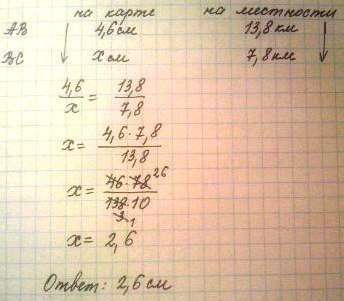 на карте на местности
AB 4,6 см 13,8 км
BC x см 7,8 км
4,6/x = 13,8/7,8
x = 4,6·7,8/13,8
x = 46·78 26/138·10 3 1
x = 2,6
Ответ: 2,6 см